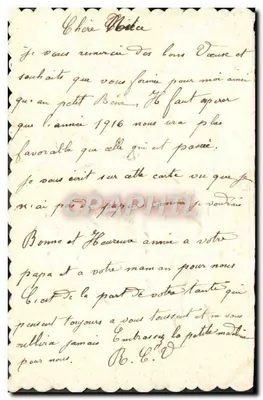 Chère Nièce
Je vous remercie des bons Vœux et
souhaits que vous formée pour moi ainsi
qu'au petit Il faut esperer
que l'année 1916 nous sera plus
favorable que celle qui est passée.
Je vous écrit sur cette carte vu que je
n'ai pas de je voudrais
Bonne et Heureuse année a votre
papa et a votre maman pour nous
C'est de la part de votre tante qui
pensent toujours a vous tousent et ne vous
oublira jamais Embrassez la petite
pour nous. R. C. V